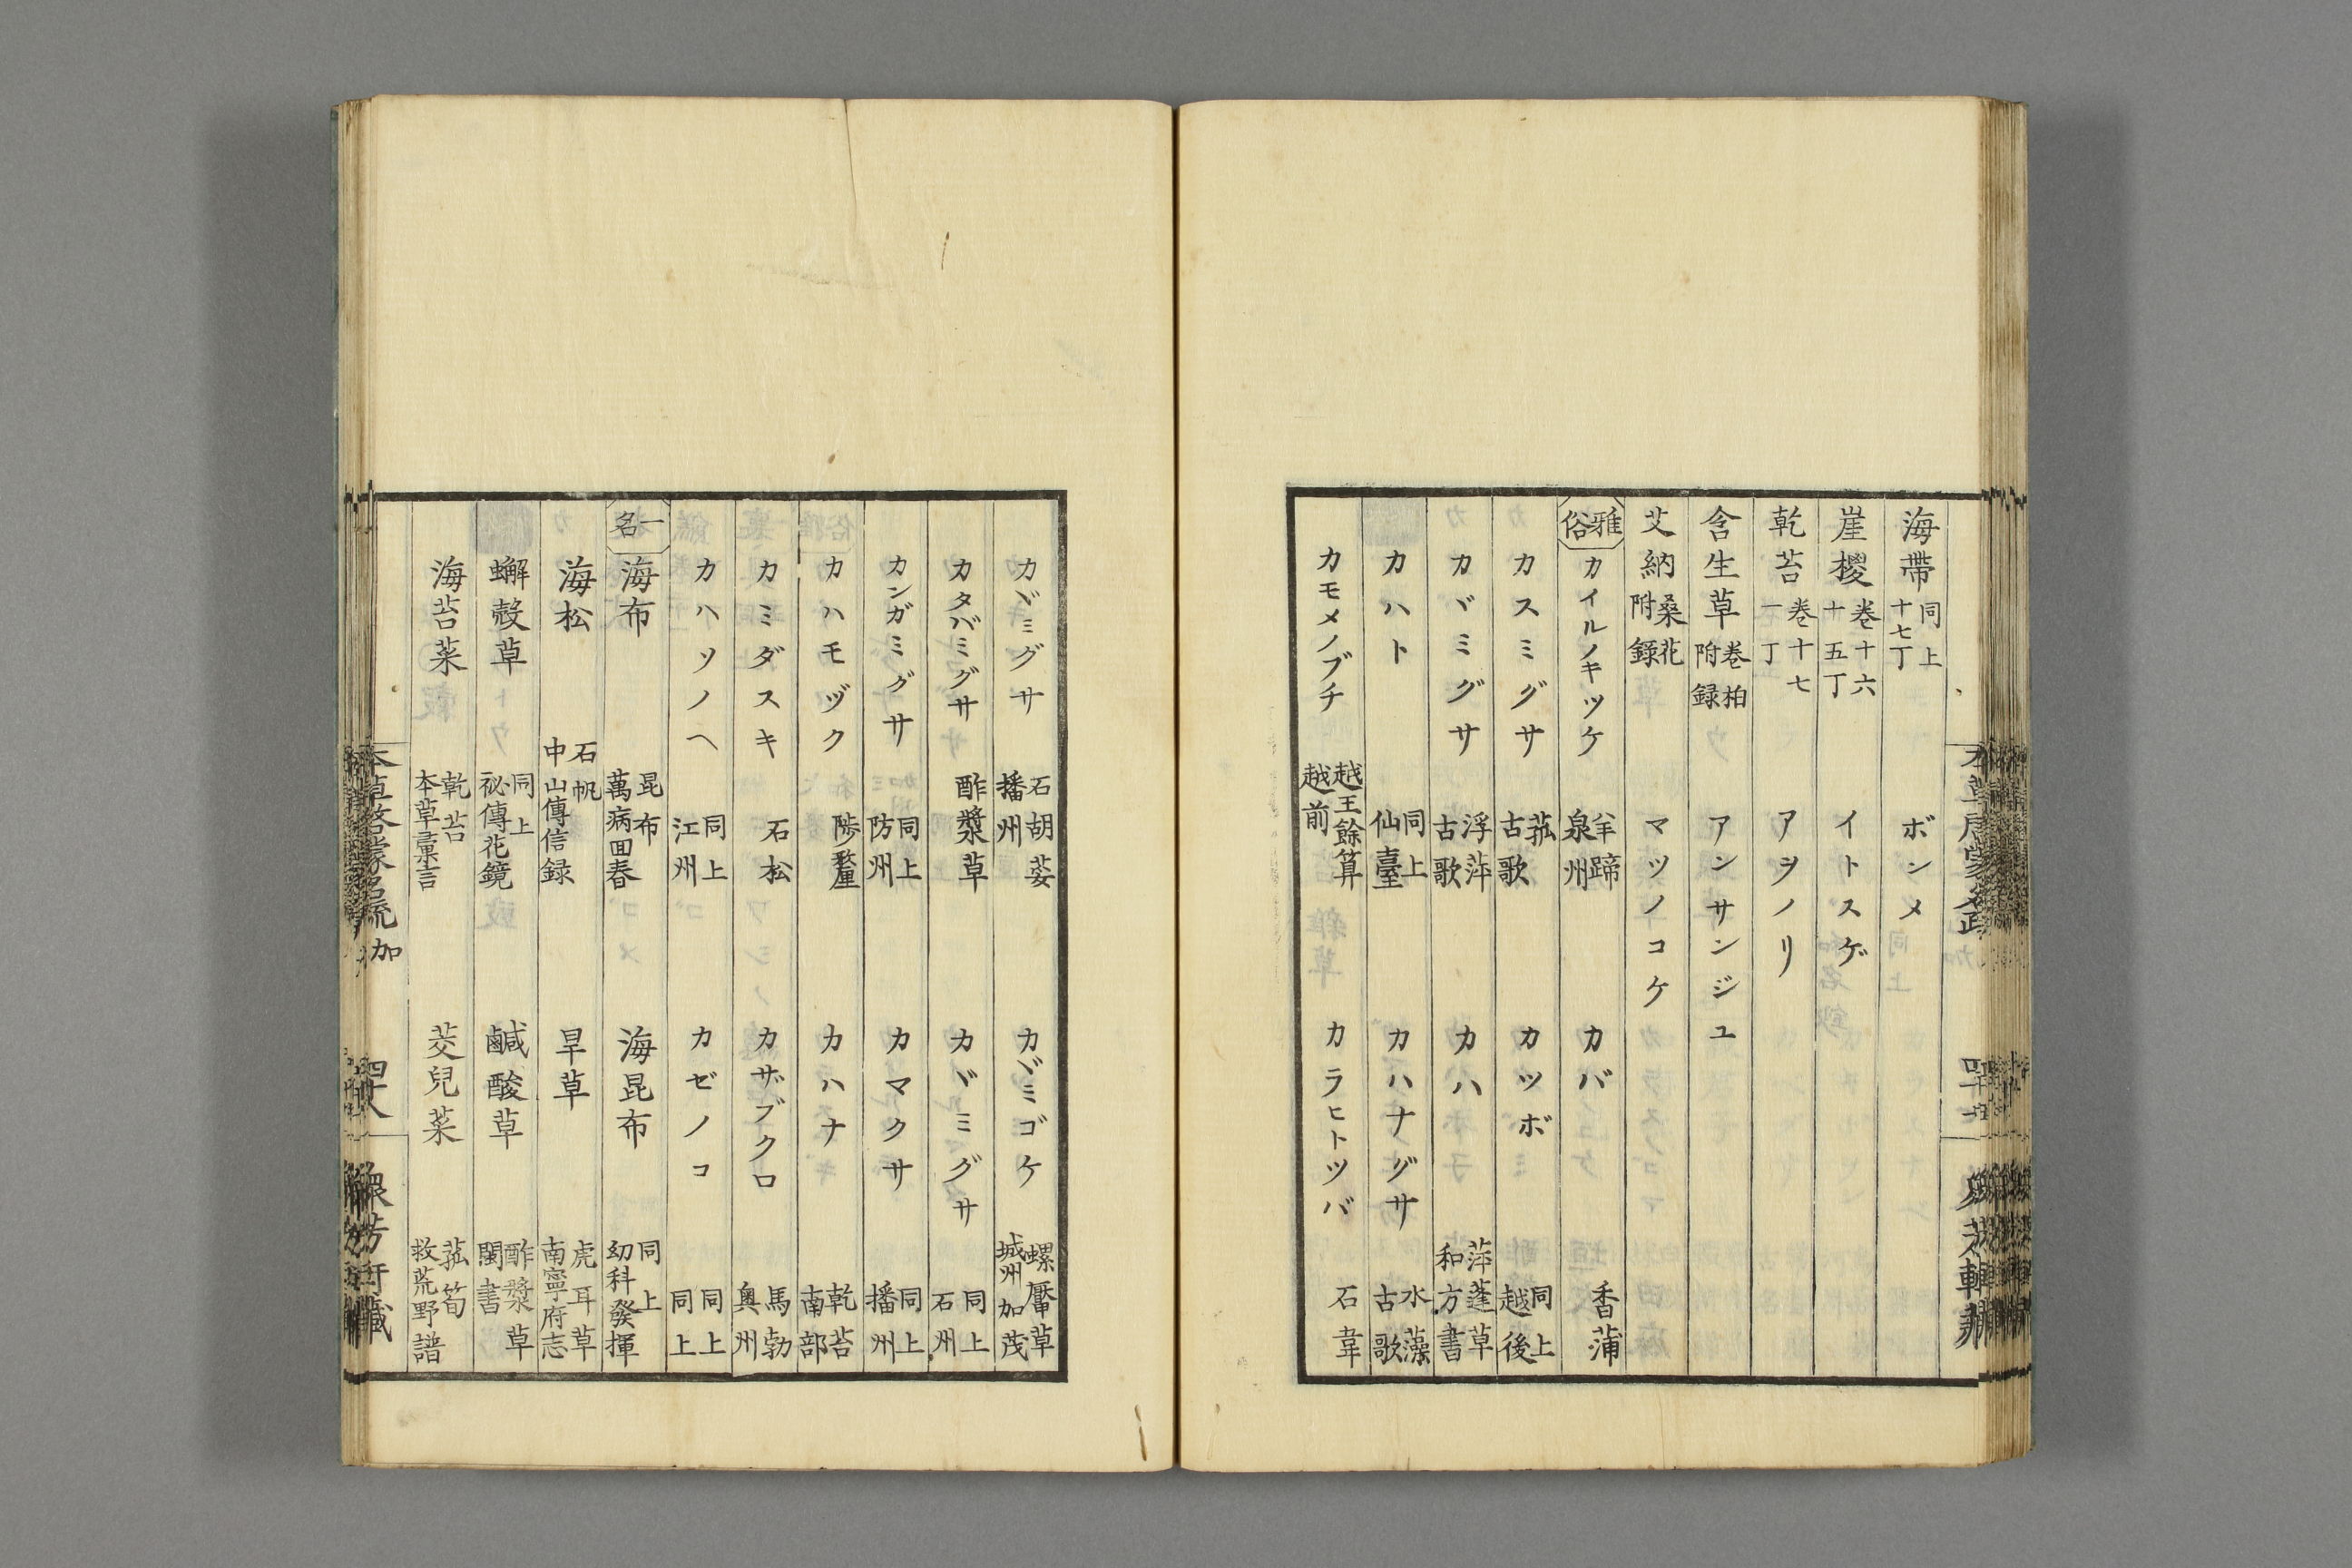 海帶 同上十七丁 ボンメ
崖椶 卷十六十五丁 イトスゲ
乾苔 卷十七一丁 アヲノリ
含生草 卷柏附録 アンサンジユ
艾納 桑花附録 マツノコケ
雅俗 カイルノキツケ 羊蹄泉州 カバ 香蒲
カスミグサ 菰古歌 カツボ 同上越後
カヾミグサ 浮萍古歌 カハ 萍蓬草和方書
カハト 同上仙臺 カハナグサ 水藻古歌
カモメノブチ 越王餘算越前 カラヒトツバ 石韋
カヾミグサ 石胡荽播州 カヾミゴケ 螺厴草城州加茂
カタバミグサ 酢漿草 カヾミグサ 同上石州
カンガミグサ 同上防州 カマクサ 同上播州
カハモヅク 陟釐 カハナ 乾苔南部
カミダスキ 石松 カザブクロ 馬勃奥州
カハソノヘ 同上江州 カゼノコ 同上同上
一名 海布 昆布萬病回春 海昆布 同上幼科發揮
海松 石帆中山傳信録 旱草 虎耳草南寧府志
蠏殼草 同上祕傳花鏡 鹹酸草 酢漿草閩書
海苔菜 乾苔本草彙言 茭兒菜 菰筍救荒野譜
本草啓蒙名疏 加 四十八 衆芳軒藏